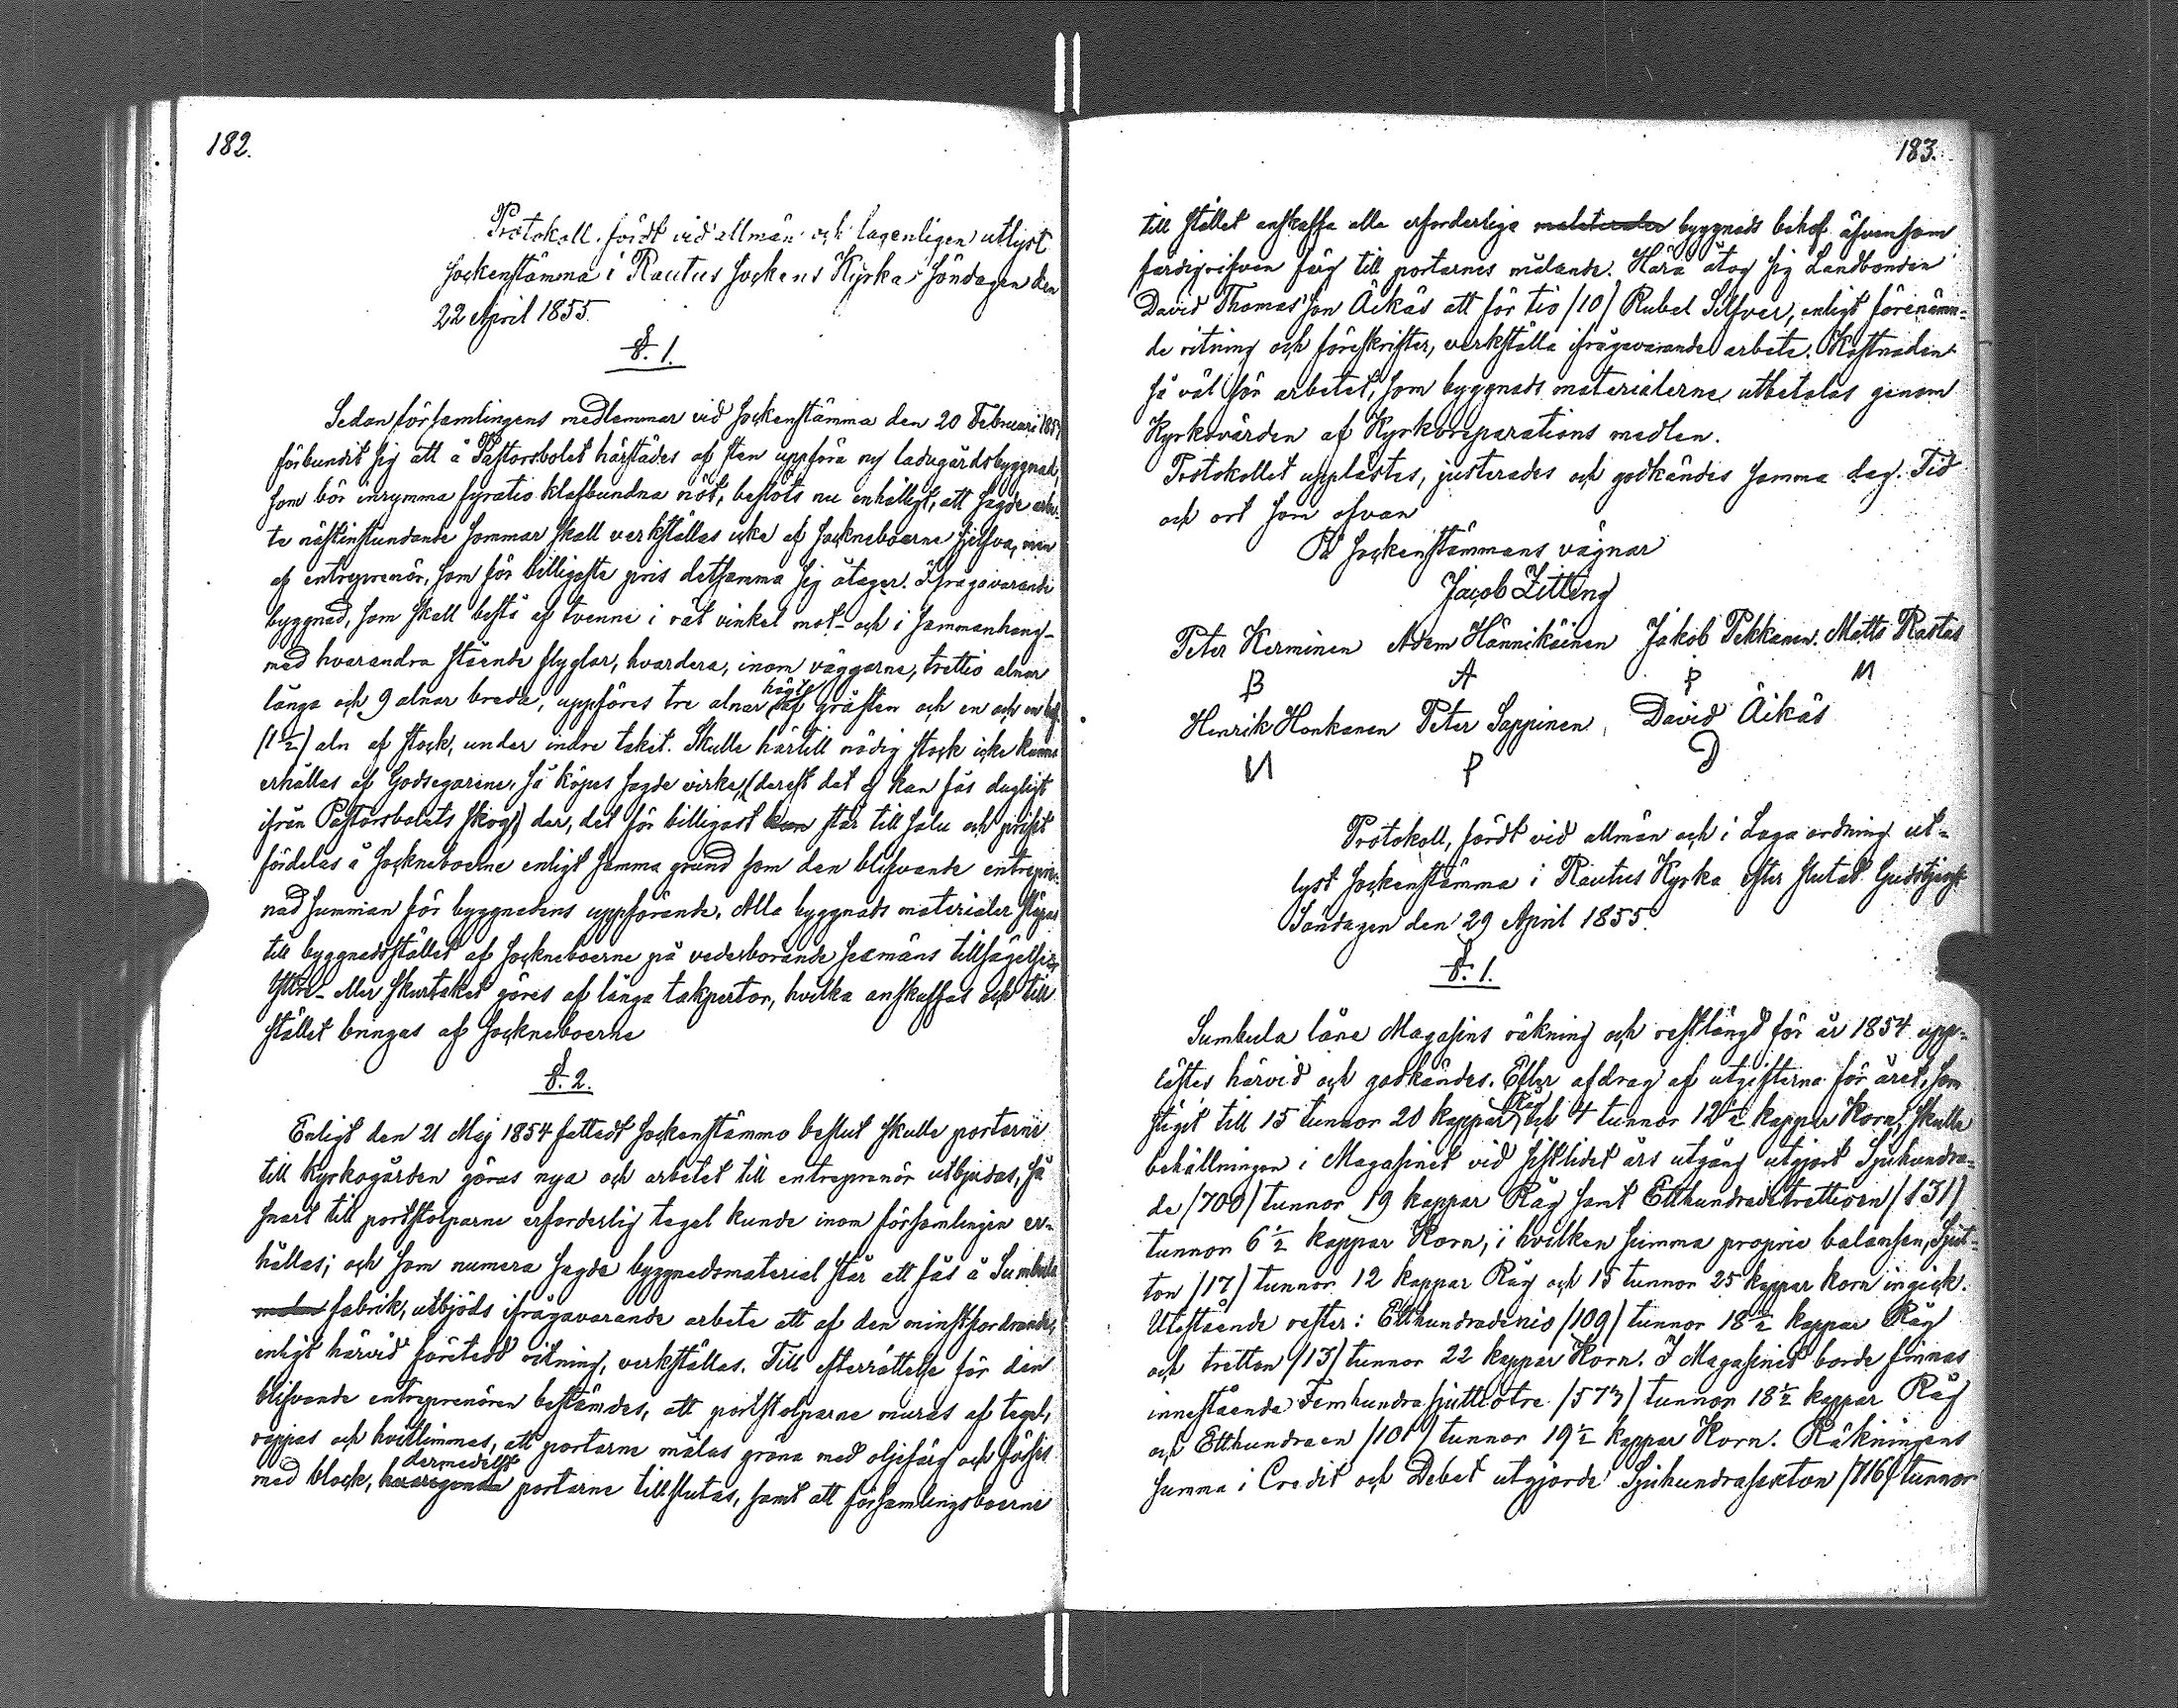 182.
Protokoll, fördt vid allmän och lagenligen utlyst
sockenstämma i Rautus Sockens Kyrka Söndagen den
22 April 1855.
§. 1.
Sedan församlingens medlemmar vid sockenstämma den 20 Februari 185
förbundit sig att å Pastorsbolet härstädes af sten uppföra ny ladugårdsbyggnad,
som bör inrymma fyratio klafbundna nöt, beslöts nu enhälligt, att sagde arbe-
te nästinstundande sommar skall verkställas icke af sockneboerne sjelfva, men
af entreprenör, som för billigaste pris detsamma sig åtager. Ifrågavarande
byggnad, som skall bestå af tvenne i rät vinkel mot- och i sammanhang-
med hvarandra stående flyglar, hvardera, inom väggarne, trettio alnar
långa och 9 alnar breda, uppföres tre alnar högt af gråsten och en och en half
(1½) aln af stock, under indre taket. Skulle härtill nödig stock icke kunna
erhållas af Godsegarene, så köpes sagde virke, (derest det ej kan fås dugligt
ifrån Pastorsbolets skog) der, det för billigast kan står till salu och priset
fördelas å Sockneboerne enligt samma grund som den blifvande entrepre-
nad summan för byggnadens uppförande. Alla byggnads materialer släpas
till byggnadsstället af sockneboerne på vederborande sexmäns tillsägelse
Yttre- eller skurtaket göres af långa takpertor, hvilka anskaffas och till
stället bringas af sockneboerne
§. 2.
Enligt den 21 Maj 1854 fattadt sockenstämmo beslut skulle portarne
till Kyrkogården göras nya och arbetet till entreprenör utbjudas, så
snart till portstolparne erforderlig tegel kunde inom församlingen er-
hållas; och som numera sagde byggnadsmaterial står att fås å Sumbula
fabrik, utbjöds ifrågavarande arbete att af den minstfordrande,
enligt härvid företedd ritning, verkställas. Till efterrättelse för den
blifvande entreprenören bestämdes, att portstolparne muras af tegel,
rappas och hvitlimmas, att portarne målas gröna med oljefärg och förses
med block, hvarigenom dermedelst portarne tillslutas, samt att församlingsboerne
183.
till stället anskaffa alla erforderliga materialer byggnads behof äfvensom
färdigrifven färg till portarnes målande. Härå åtog sig Landbonden
David Thomas'son Äikäs att för tio /10/ Rubel Silfver, enligt förenämn-
de ritning och föreskrifter, verkställa ifrågavarande arbete. Kostnaden
så väl för arbetet, som byggnads materialerne utbetalas genom
Kyrkovärden af Kyrkoreparations medlen.
Protokollet upplästes, justerades och godkändes samma dag. Tid
och ort som ofvan
På Sockenstämmans vägnar
Jacob Zitting
Peter Kerminen Adam Hännikäinen Jakob Pekkanen. Matts Rastas
B A P M
Henrik Honkanen Peter Sappinen, David Äikäs
M P D
Protokoll, fördt vid allmän och i Laga ordning ut-
lyst sockenstämma i Rautus Kyrka efter slutad Gudstjenst
Söndagen den 29 April 1855.
§. 1.
Sumbula låne Magasins räkning och restlängd för år 1854 upp-
lästes härvid och godkändes. Efter afdrag af utgifterna för året, som
stiget till 15 tunnor 20 kappar Råg och 4 tunnor 12½ kappar Korn, skulle
behållningen i Magasinet vid sistlidet års utgång utgjort Sjuhundra-
de /700/ tunnor 19 kappar Råg samt Etthundradetrettioen /131/
tunnor 6½ kappar Korn, i hvilken summa proprie balansen, Sjut-
ton /17/ tunnor 12 kappar Råg och 15 tunnor 25 kappar korn ingick.
Utestående rester: Etthundradenio /109/ tunnor 18½ kappar Råg
och tretton /13/ tunnor 22 kappar Korn. I Magasinet borde finnas
innestående Femhundrasjuttiotre /573/ tunnor 18½ kappar Råg
och Etthundraen /101/ tunnor 19½ kappar Korn. Räkningens
summa i Credit och Debet utgjorde Sjuhundrasexton /716/ tunnor